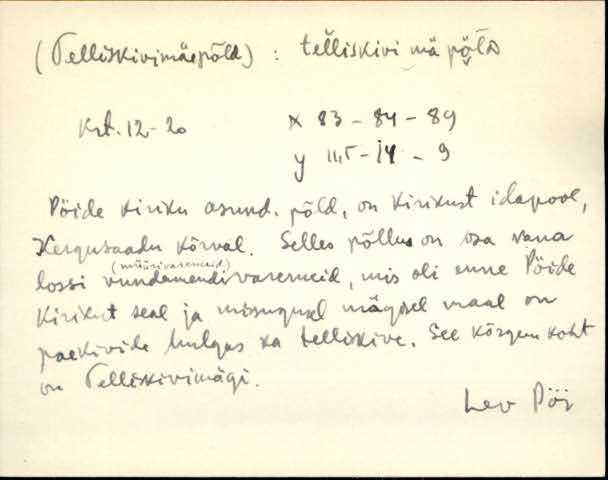 (Telliskivimäepõld) : telliskivi mä põld
Krt. 12-20 x 83 - 84 - 89
y 11,5 - 14 - 9
Pöide kiriku asund. põld, on kirikust idapool,
Kergusaadu kõrval. Selles põllus on osa vana
(müürivaremeid)
lossi vundamendivaremeid, mis oli enne Pöide
kirikut seal ja misugusel mägisel maal on
paekivide hulgas ka telliskive. See kõrgem koht
on Telliskivimägi.
Lev Pöi